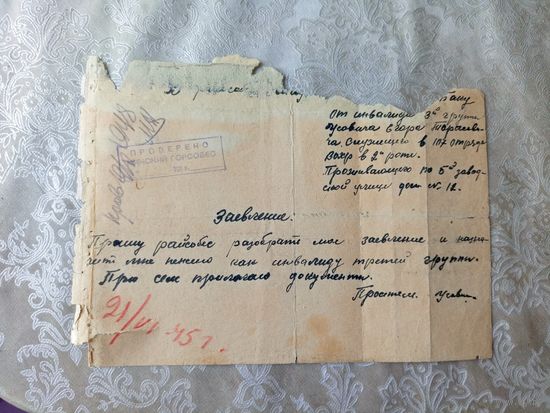 от инвалида 3й группы
Усовича Егора Тарасови-
ча служившего в 107 отряде
Вохр в 2й роте.
Проживающего по 5й завод-
ской улице дом № 12.
ПРОВЕРЕНО
ГОРСОБЕС
Заявление.
Прошу райсобес разобрать мое заявление и назна-
чит мне пенсию как инвалиду третей группы.
При сем прилогаю документи.
Просител.
21/VI-45 г.